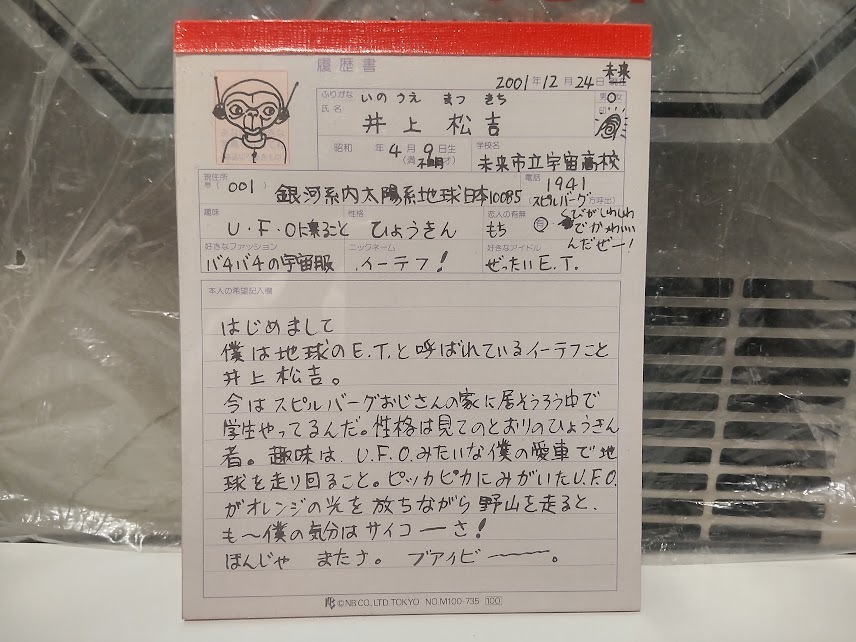 履歴書
2001年12月24日 未来
ふりがな いのうえ まつ きち
氏名 井上 松吉
男 女
昭和 年4月9日生
(満 不明 才)
学校名
未来市立宇宙高校
現住所
(001) 銀河系内太陽系地球日本10085
電話
1941
スピルバーグ方呼出
趣味
U.F.Oに乗ること
性格
ひょうきん
恋人の有無
もち 有 くびがしわしわ
でかわいい
んだぜー!
好きなファッション
バチバチの宇宙服
ニックネーム
イーテフ!
好きなアイドル
ぜったいE.T.
本人の希望記入欄
はじめまして
僕は地球のE.T.と呼ばれているイーテフこと
井上松吉。
今はスピルバーグおじさんの家に居そうろう中で
学生やってるんだ。性格は見てのとおりのひょうきん
者。趣味は、U.F.O.みたいな僕の愛車で地
球を走り回ること。ピッカピカにみがいたU.F.O.
がオレンジの光を放ちながら野山を走ると、
も〜僕の気分はサイコーーさ!
ほんじゃ またさ。 ブアイビーーー。
©NB CO.,LTD.TOKYO NO.M100-735 100